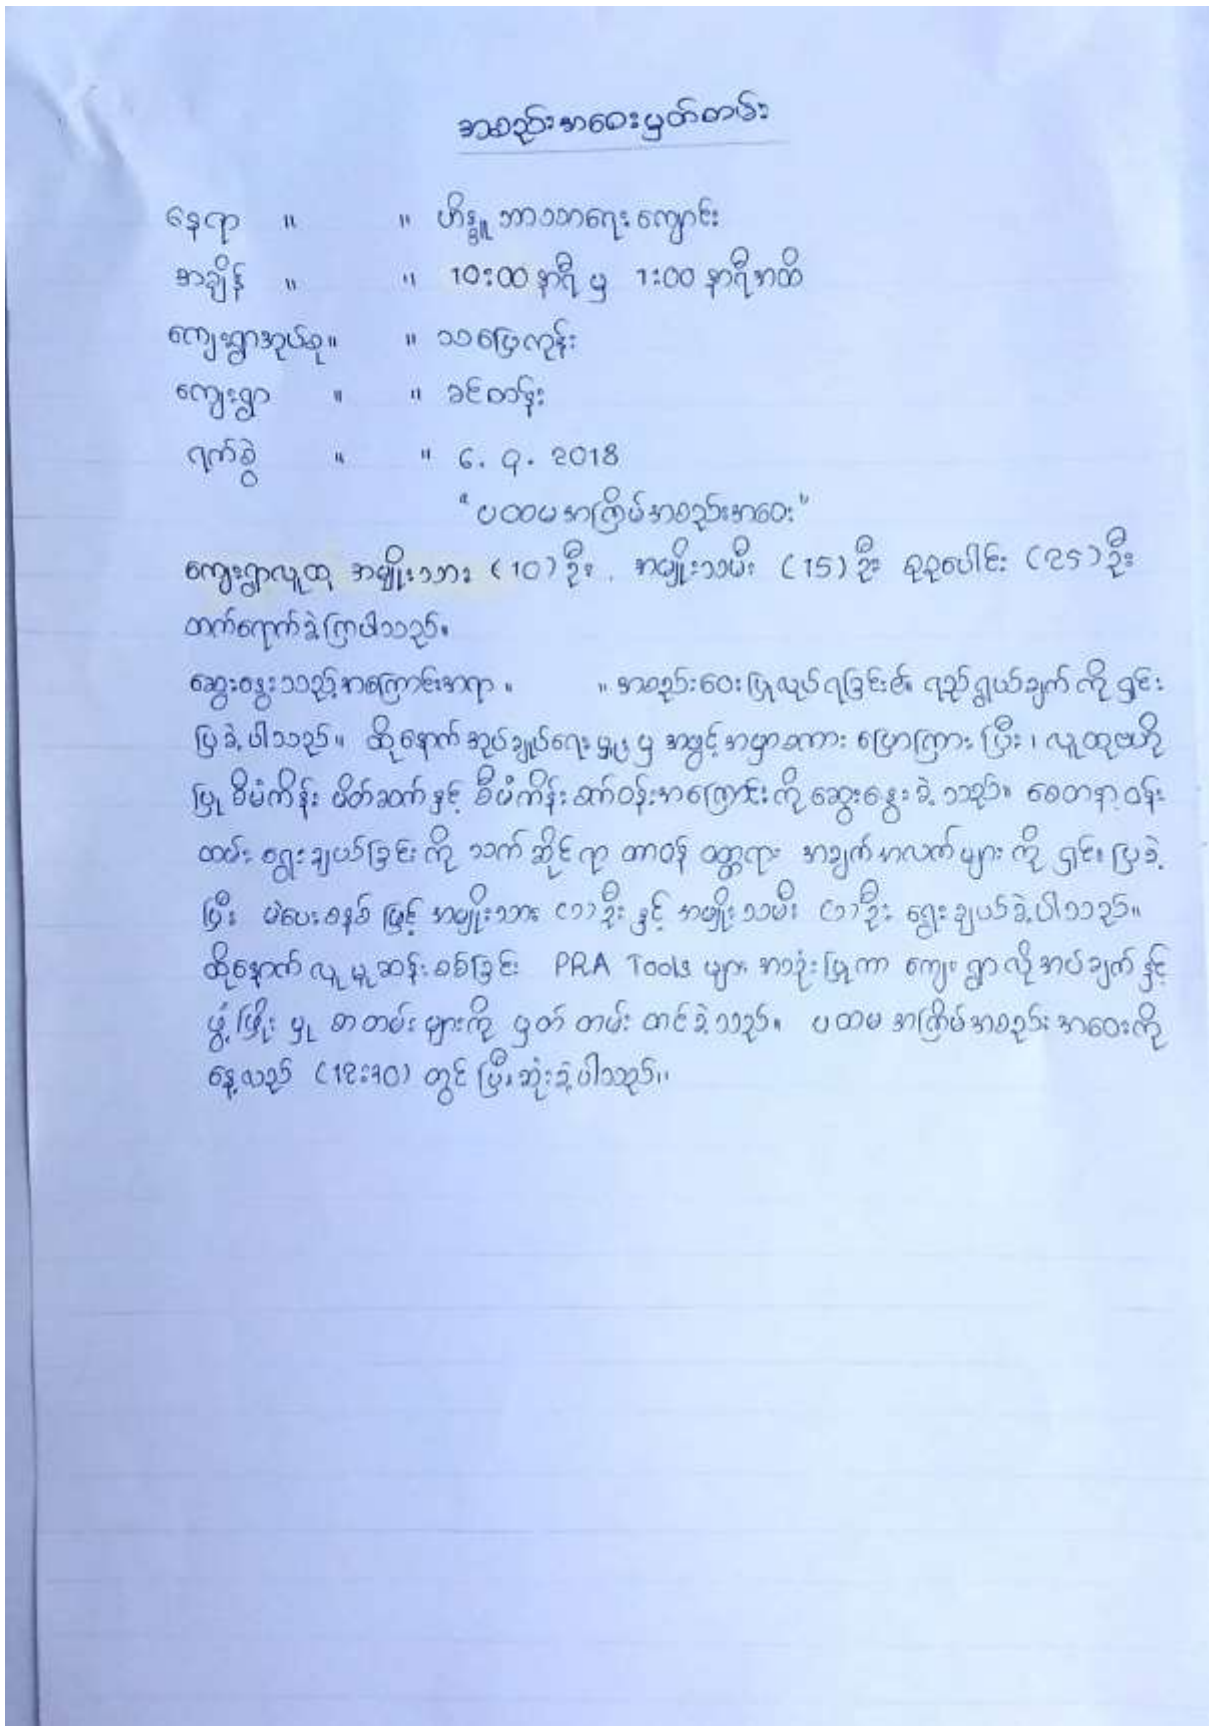 အစည်းအဝေးမှတ်တမ်း
နေရာ ။ ။ ဟိန္ဒူဘာသာရေးကျောင်း
အချိန် ။ ။ 10:00 နာရီ မှ 1:00 နာရီအထိ
ကျေးရွာအုပ်စု။ ။ သပြေကုန်း
ကျေးရွာ ။ ။ ခင်တန်း
ရက်စွဲ ။ ။ ၆. ၇. 2018
"ပထမအကြိမ်အစည်းအဝေး"
ကျေးရွာလူထု အမျိုးသား (10) ဦး, အမျိုးသမီး (15) ဦး စုစုပေါင်း (25) ဦး
တက်ရောက်ခဲ့ကြပါသည်။
ဆွေးနွေးသည့်အကြောင်းအရာ ။ ။ အစည်းဝေးပြုလုပ်ရခြင်း၏ ရည်ရွယ်ချက်ကို ရှင်း
ပြခဲ့ပါသည်။ ထို့နောက်အုပ်ချုပ်ရေးမှူးမှ အဖွင့်အမှာစကား ပြောကြားပြီး၊ လူထုဗဟို
ပြုစီမံကိန်း မိတ်ဆက်နှင့် စီမံကိန်းစက်ဝန်းအကြောင်းကိုဆွေးနွေးခဲ့သည်။ စေတနာ့ဝန်
ထမ်း ရွေးချယ်ခြင်းကို သက်ဆိုင်ရာ တာဝန် ဝတ္တရား အချက်အလက်များကို ရှင်းပြခဲ့
ပြီး မဲပေးစနစ်ဖြင့် အမျိုးသား (၁)ဦး နှင့် အမျိုးသမီး (၁)ဦး ရွေးချယ်ခဲ့ပါသည်။
ထို့နောက် လူမှုဆန်းစစ်ခြင်း PRA Tools များ အသုံးပြုကာ ကျေးရွာလိုအပ်ချက်နှင့်
ဖွံ့ဖြိုးမှု စာတမ်းများကို မှတ်တမ်းတင်ခဲ့သည်။ ပထမအကြိမ်အစည်းအဝေးကို
နေ့လည် (12:30) တွင် ပြီးဆုံးခဲ့ပါသည်။